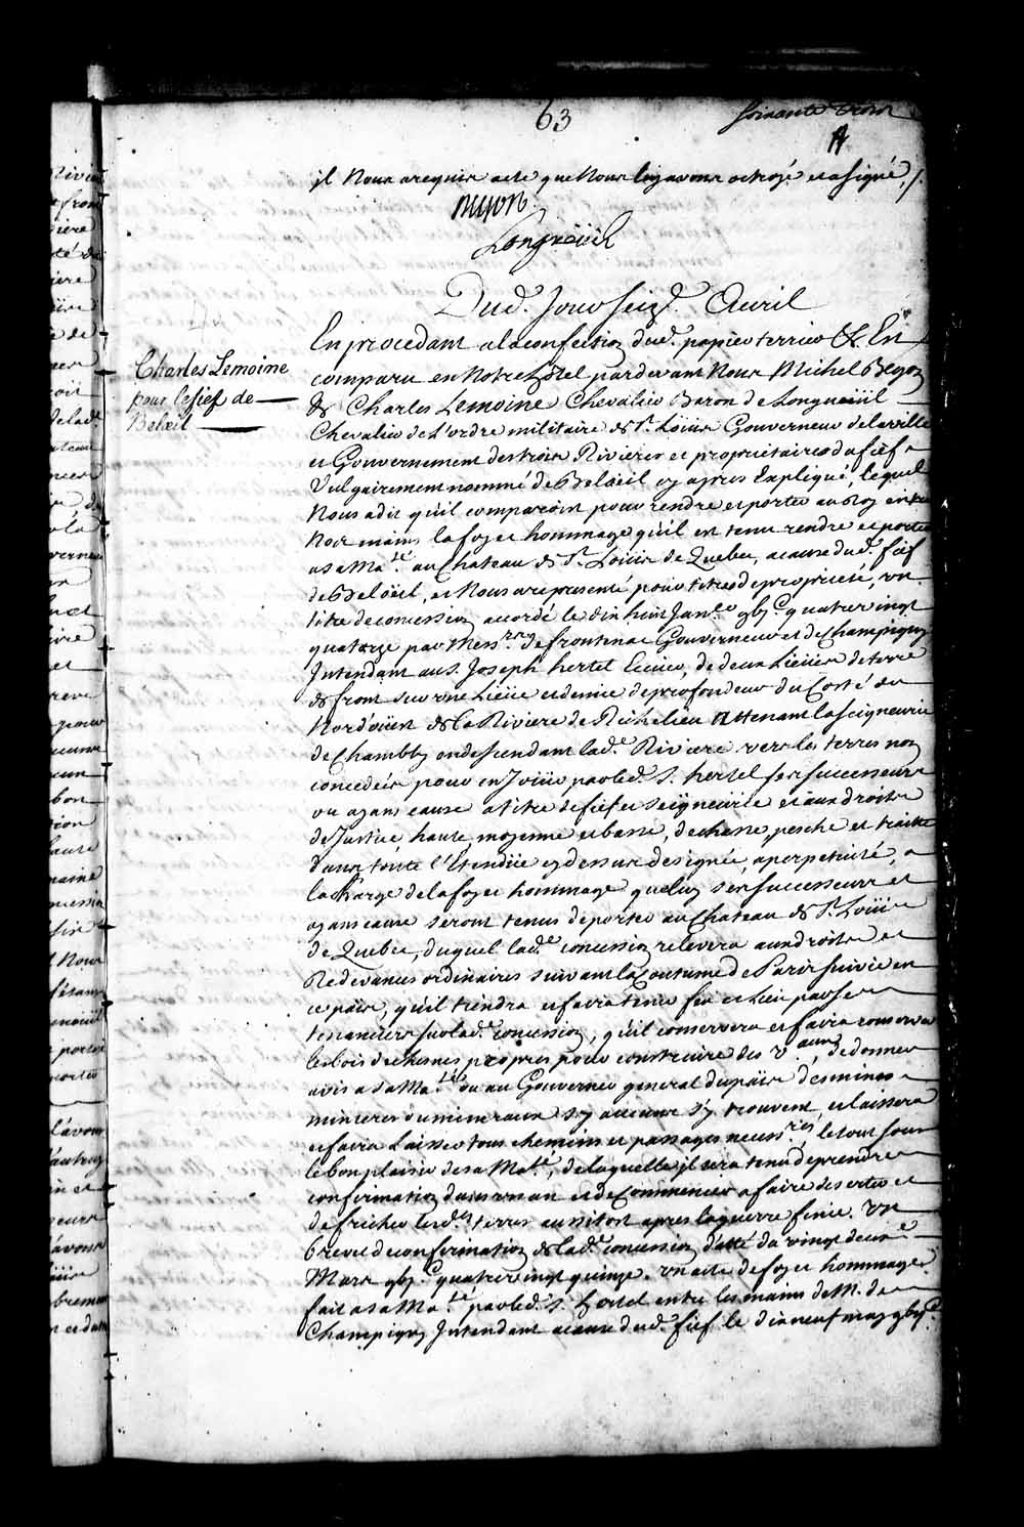 63
soixante trois
il Nous a requis acte que Nous luy avons octroyé et a signé ./.
Longueüil
Dud. Jour seize Avril
En procedant a la confection dud. papier terrier &c Est
Charles Lemoine
pour le fief de
Belœil
comparu en Notre hôtel pardevant Nous Michel Begon
&c Charles Lemoine Chevalier Baron de Longueüil
Chevalier de L'ordre militaire de St. Loüis Gouverneur de la ville
et Gouvernement des trois Rivieres et proprietaire du fief
Vulgairement nommé de Belœil cy apres Expliqué, lequel
Nous a dit qu'il comparoit pour rendre et porter au Roy entre
Nos mains la foy et hommage qu'il est tenu rendre et porter
a sa Ma.té au Chateau de St. Loüis de Quebec, a cause dud. fief
de Belœil, et Nous a representé pour titres de proprieté, un
titre de concession accordé le dix huit Janer gbjc quatre vingt
quatorze par Messrs de frontenac Gouverneur et de Champigny
Intendant au S. Joseph hertel Ecuier, de deux Lieües de terre
de front sur une Lieüe et demie de profondeur du Costé du
Nord oüest de la Riviere de Richelieu Attenant la seigneurie
de Chambly en descendant lad.e Riviere vers les terres non
concedées pour en Joüir par led. S. hertel ses successeurs
ou ayans cause a titre de fief et seigneurie et aux droits
de Justice, haute, moyenne et basse, de chasse, pesche et traitte
dans toute l'Etendüe cy dessus designée, a perpetuité, a
la charge de la foy et hommage que luy ses successeurs et
ayans cause seront tenus de porter au Chateau de St. Loüis
de Quebec, duquel lad.e concession relevera aux droits et
Redevances ordinaires suivant la Coutume de Paris suivie en
ce païs, qu'il tiendra et fera tenir feu et lieu par ses
tenanciers sur lad. concession, qu'il conservera et fera conserver
les bois de chesnes propres pour construire des v.aux, de donner
avis a sa Ma.té ou au Gouverneur general du païs des mines
minieres ou mineraux sy aucuns s'y trouvent, et laissera
et fera Laisser tous chemins et passages necessres, le tout sous
le bon plaisir de sa Ma.té, de laquelle il sera tenu de prendre
confirmation dans un an et de Commencer a faire deserter et
defricher lesd.es terres aussitost apres la guerre finie. Un
brevet de confirmation de lad.e concession datté du vingt deux
Mars gbjc quatre vingt quinze. Un acte de foy et hommage
fait a sa Ma.té par led. S. hertel entre les mains de M. de
Champigny Intendant a cause dud. fief le dix neuf may gbjc